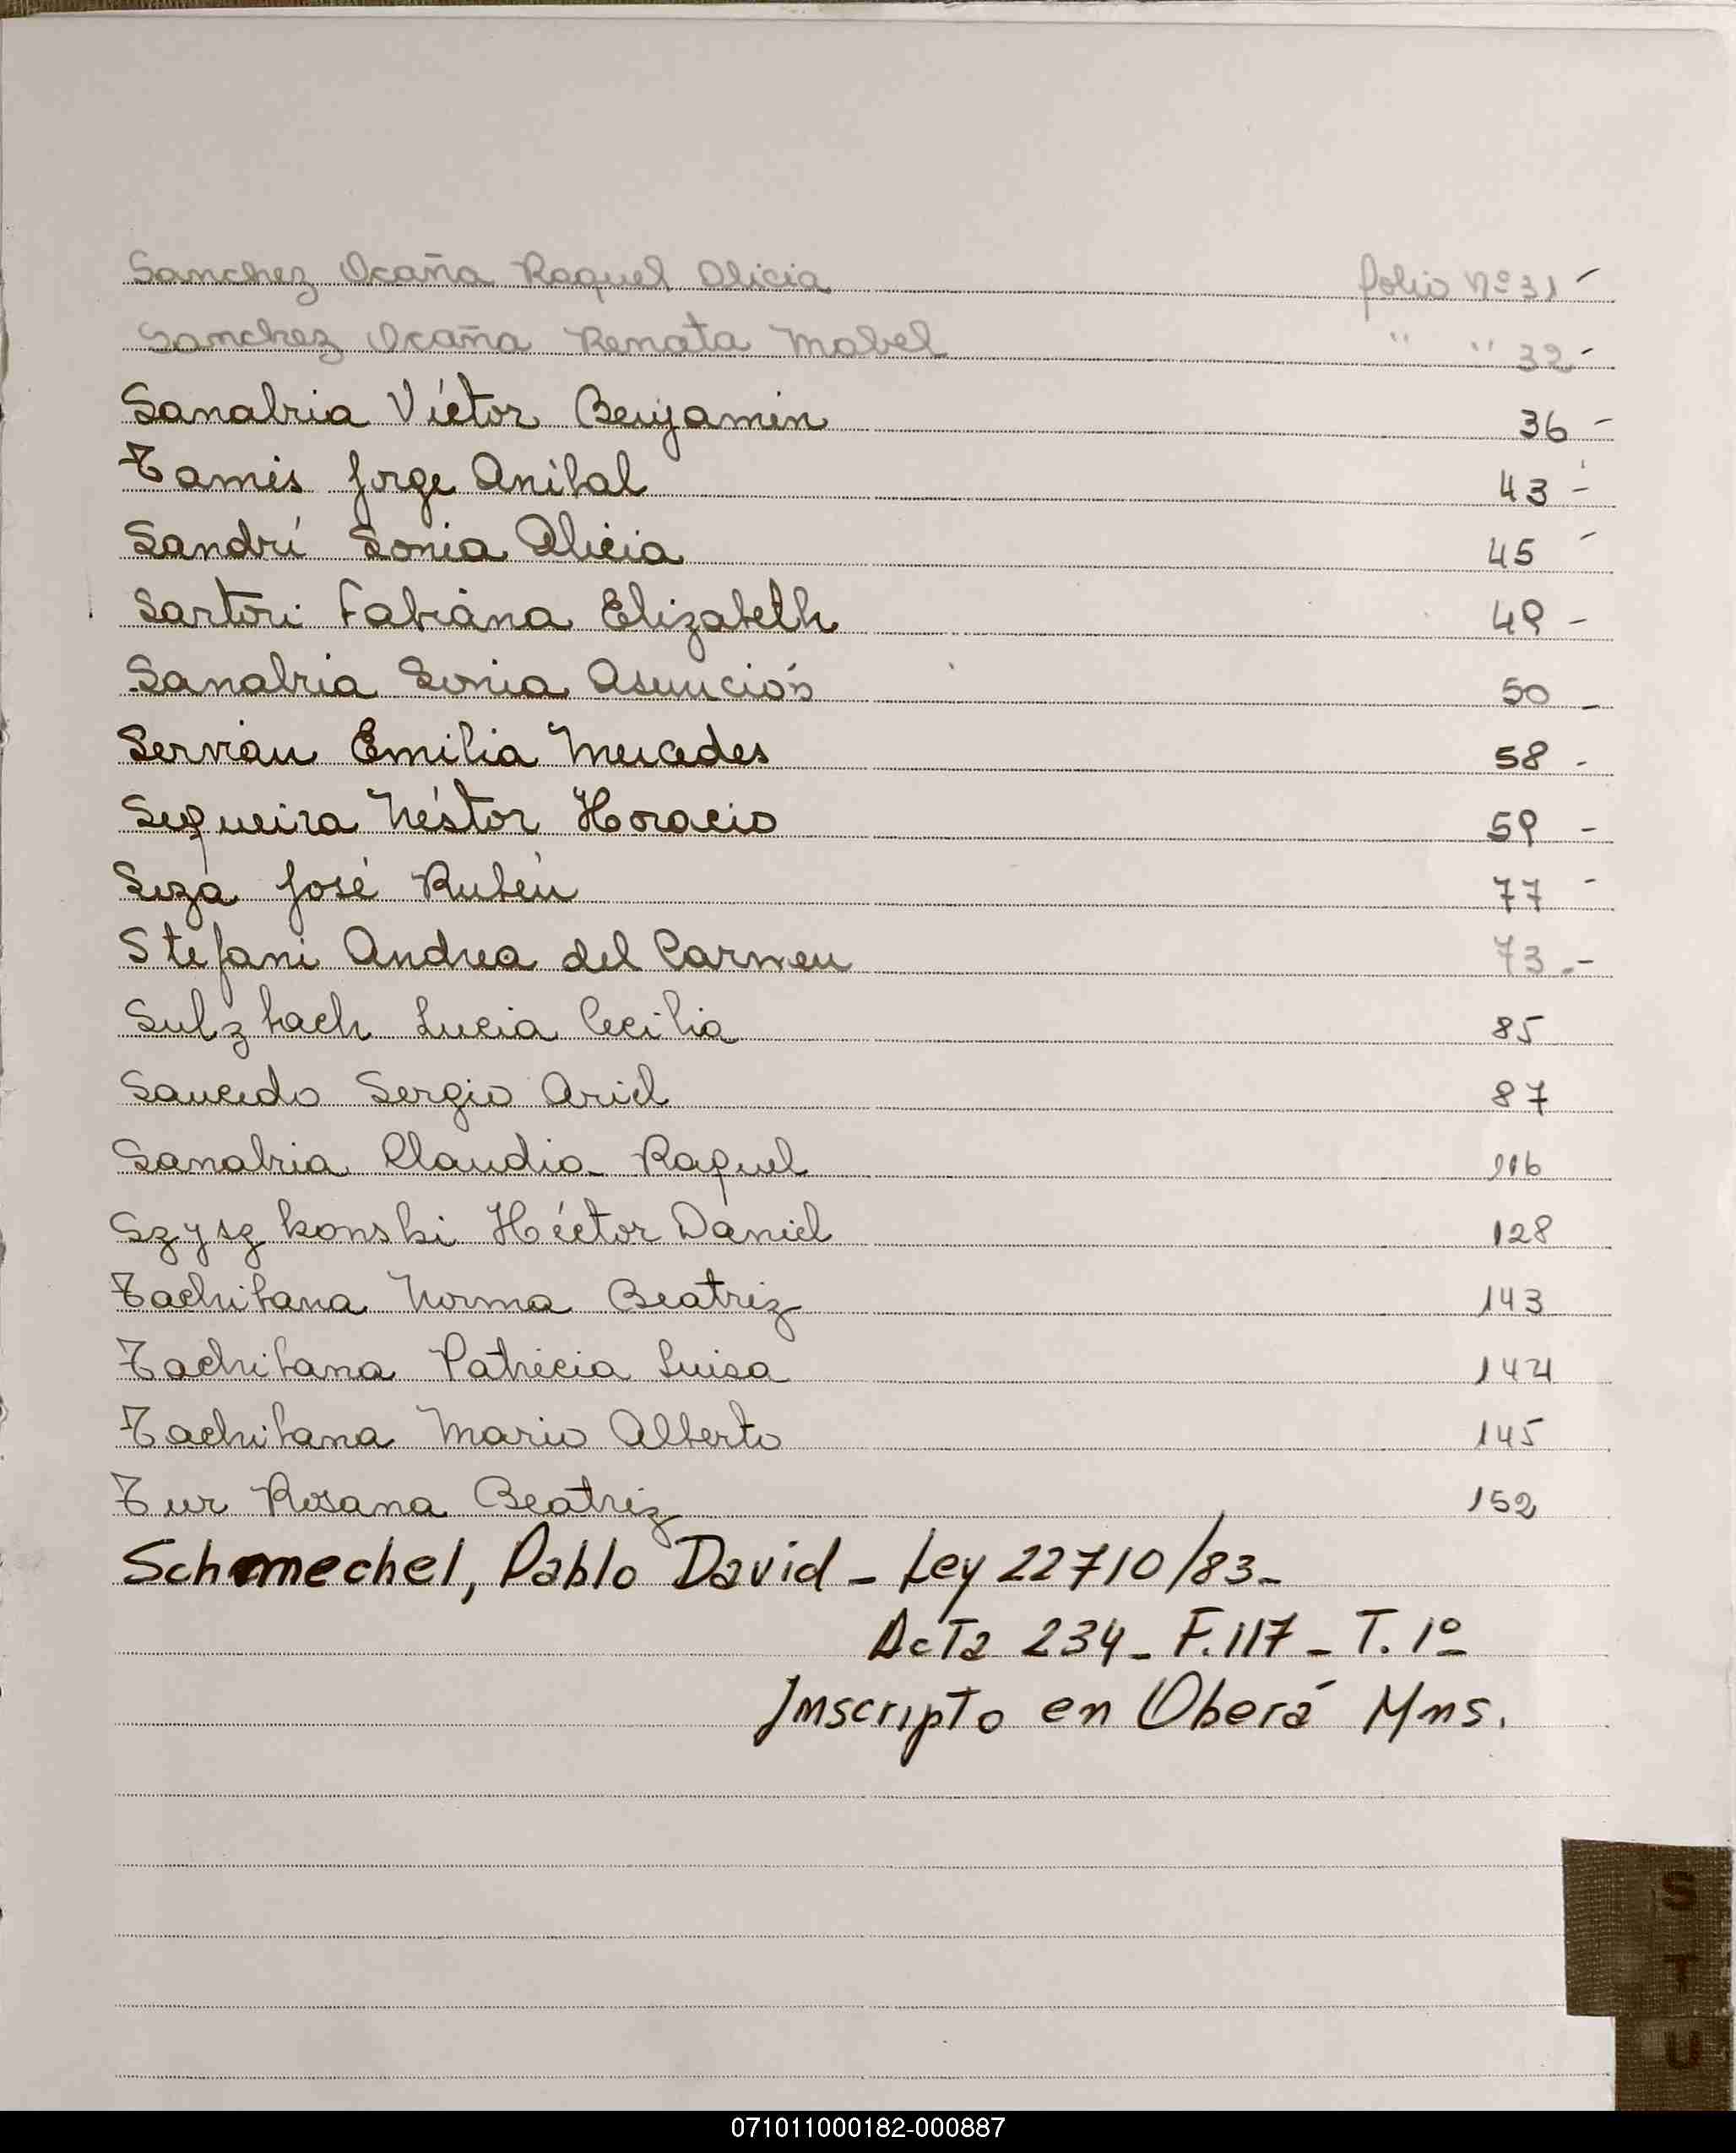 Sanchez Ocaña Raquel Alicia folio Nº 31 -
Sanchez Ocaña Renata Mabel " " 32 -
Sanabria Víctor Benjamin 36 -
Tamis Jorge Anibal 43 -
Sandrí Sonia Alicia 45 -
Sartori Fabiána Elizabeth 49 -
Sanabria Sonia Asunción 50 -
Servián Emilia Mercedes 58 -
Sequeira Néstor Horacio 59 -
Seza José Rubén 77 -
Stefani Andrea del Carmen 73.-
Sulzbach Lucia Cecilia 85
Saucedo Sergio Ariel 87
Sanabria Claudia Raquel 116
Szyszkonski Héctor Daniel 128
Tachibana Norma Beatriz 143
Tachibana Patricia Luisa 144
Tachibana Mario Alberto 145
Tur Rosana Beatriz 152
Schmechel, Pablo David - Ley 22710/83-
Acta 234 - F.117 - T. 1º
Inscripto en Oberá Mns.
S
T
U
071011000182-000887